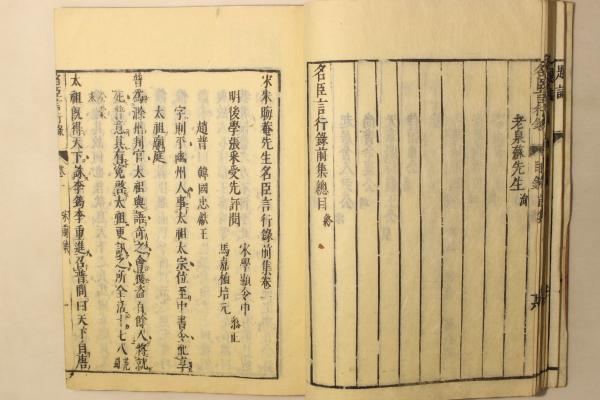 老泉蘇先生洵
名臣言行錄前集總目終
宋朱晦菴先生名臣言行錄前集卷一
明後學張采受先評閱
宋學顯令申
馬嘉植培元
趙普 韓國忠獻王
字則平幽州人事太祖太宗位至中書令配享
太祖廟庭
普為滁州判官太祖與語奇之會獲盜百餘人將就
死普意其有冤啓太祖更訊之所全活十七八
太祖既得天下誅李筠李重進召普問曰天下自唐
名臣言行錄 卷一